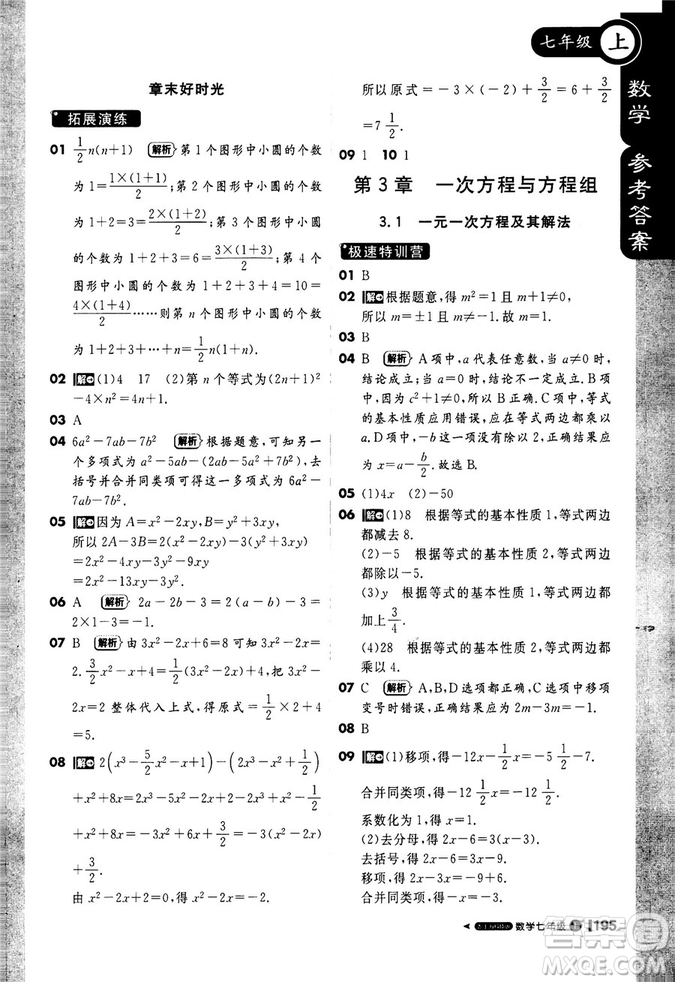 七年级 上
数学 参考答案
章末好时光
拓展演练
01 $\frac{1}{2}$n(n+1) 解析 第1个图形中小圆的个数
为1=$\frac{1×(1+1)}{2}$;第2个图形中小圆的个数
为1+2=3=$\frac{2×(1+2)}{2}$;第3个图形中小圆
的个数为1+2+3=6=$\frac{3×(1+3)}{2}$;第4个
图形中小圆的个数为1+2+3+4=10=
$\frac{4×(1+4)}{2}$……则第n个图形中小圆的个数
为1+2+3+…+n=$\frac{1}{2}$n(n+1).
02 解 (1)4 17 (2)第n个等式为(2n+1)²
-4×n²=4n+1.
03 A
04 6a²-7ab-7b² 解析 根据题意,可知另一
个多项式为a²-5ab-(2ab-5a²+7b²),去
括号并合并同类项可得该多项式为6a²-
7ab-7b².
05 解 因为A=x²-2xy,B=y²+3xy,
所以2A-3B=2(x²-2xy)-3(y²+3xy)
=2x²-4xy-3y²-9xy
=2x²-13xy-3y².
06 A 解析 2a-2b-3=2(a-b)-3=
2×1-3=-1.
07 B 解析 由3x²-2x+6=8可知3x²-2x=
2.$\frac{3}{2}$x²-x+4=$\frac{1}{2}$(3x²-2x)+4,把3x²-
2x=2整体代入上式,得原式=$\frac{1}{2}$×2+4
=5.
08 解 2(x³-$\frac{5}{2}$x²-x+1)-(2x³-x²-$\frac{1}{2}$)
+x²+8x=2x³-5x²-2x+2-2x³+x²+$\frac{1}{2}$
+x²+8x=-3x²+6x+$\frac{5}{2}$=-3(x²-2x)
+$\frac{3}{2}$.
由x²-2x+2=0,得x²-2x=-2.
所以原式=-3×(-2)+$\frac{3}{2}$=6+$\frac{3}{2}$
=7$\frac{1}{2}$.
09 1 10 1
第3章 一次方程与方程组
3.1 一元一次方程及其解法
极速特训营
01 B
02 解 根据题意,得m²=1且m+1≠0,
所以m=±1且m≠-1.故m=1.
03 B
04 B 解析 A项中,a代表任意数,当a≠0时,
结论成立;当a=0时,结论不成立;B项中,
因为c²+1≠0,所以B正确;C项中,等式
的基本性质应用错误,应在等式两边都乘以
a.D项中,-b应为除以2,正确结果应
为x=a-$\frac{b}{2}$.故选B.
05 (1)4x (2)-50
06 解 (1)8 根据等式的基本性质1,等式两边
都减去8.
(2)-5 根据等式的基本性质2,等式两边
都除以-5.
(3)y 根据等式的基本性质1,等式两边都
加上$\frac{3}{4}$.
(4)28 根据等式的基本性质2,等式两边都
乘以4.
07 C 解析 A,B,D选项都正确,C选项中移项
变号时出现错误,正确结果应为2m-m=3.
08 B
09 解 (1)移项,得-12x-$\frac{1}{2}$x=-$\frac{11}{2}$-7.
合并同类项,得-$\frac{25}{2}$x=-$\frac{25}{2}$.
系数化为1,得x=1.
(2)去分母,得2x-2-(x+2)=3(4-x).
去括号,得2x-2-x-2=12-3x.
移项,得2x-x+3x=12+2+2.
合并同类项,得4x=16.
数学七年级 上 195
答案圈
MXQE.COM